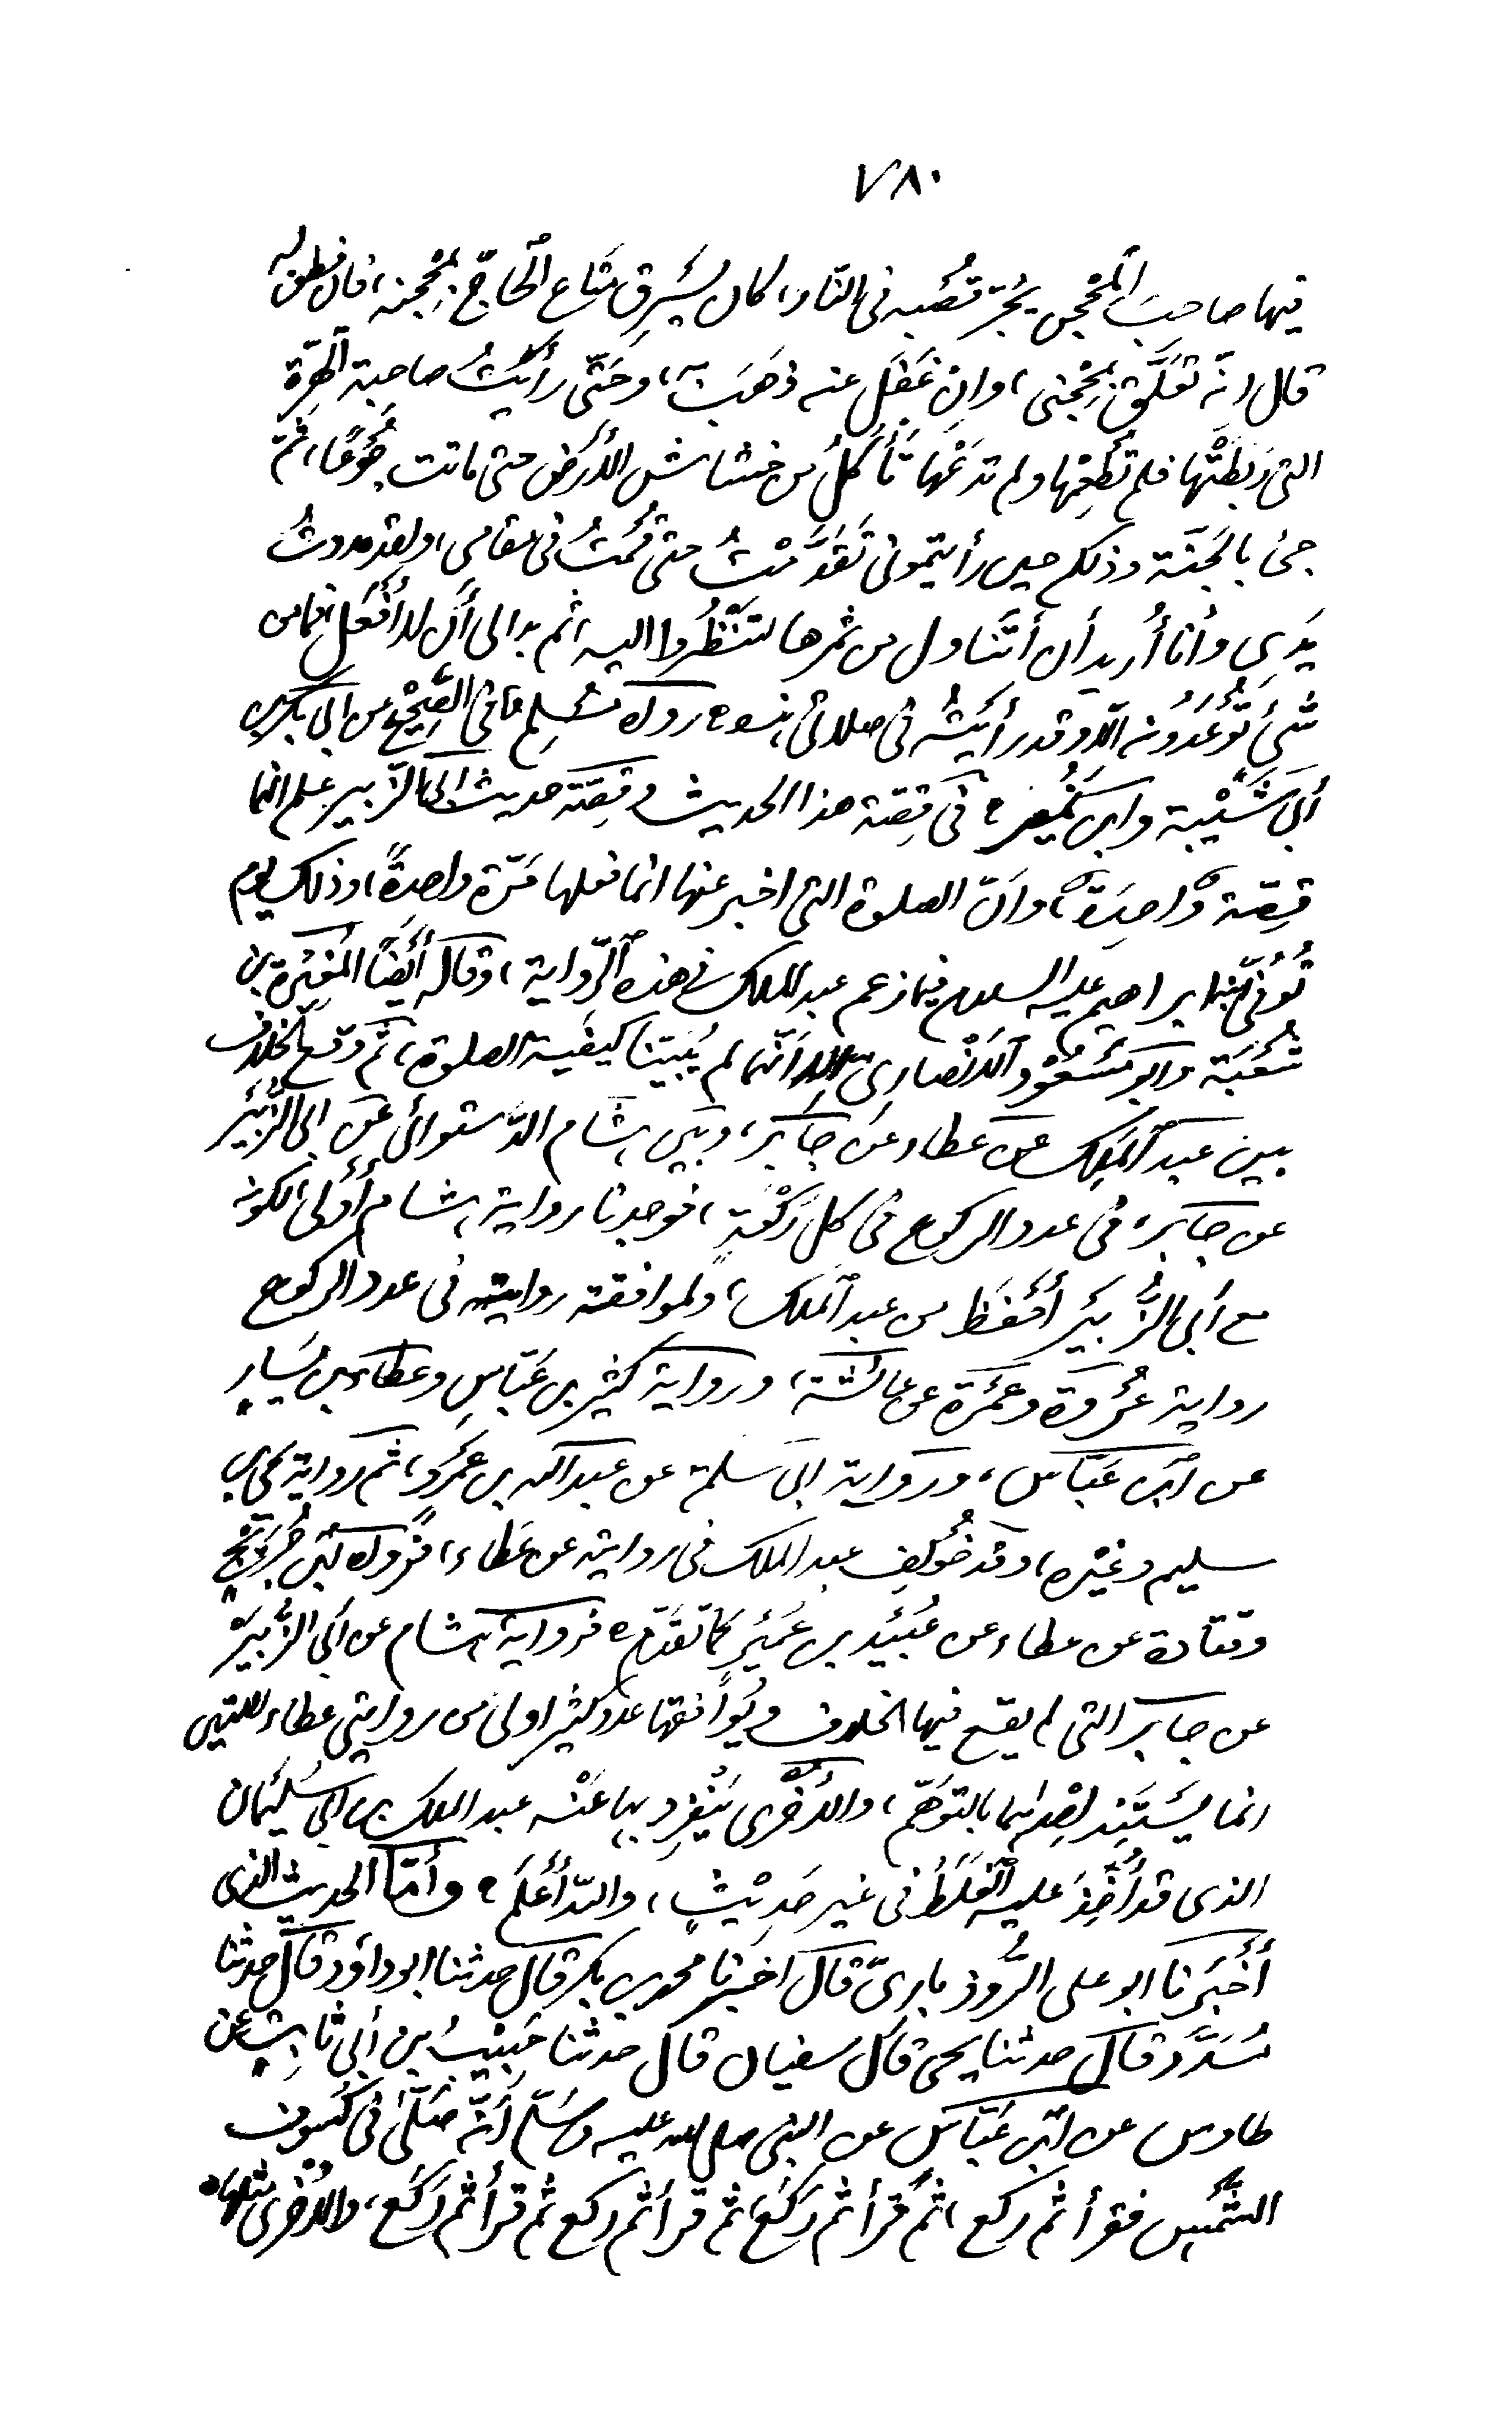 ٧٨٠
فيها صاحبَ ٱلْمِحْجن يَجُرّ قُصْبه فى النّار، كان يَسْرِق مَتَاع ٱلْحَاجّ بِمِحْجَنه، فان فطن له
قال إنّه تَعَلَّق بِمِحْجَنى، وإن غَفَل عنه ذَهَبَ به، وحَتّى رأَيْتُ صاحبة ٱلْهِرّة
التى رَبَطَتْها فلم تُطْعِمْها ولم تدَعْهَا تَأْكُلُ من خشاش الأَرْض حتى ماتت جُوْعًا، ثمّ
جئ بالجَنّة وذلكم حين رأيتمونى تَقَدَّمْتُ حتى قُمْتُ فى مقامى، ولقد مددتُ
يَدِى وأنا أُريد أن أتَنَاول من ثمرها لتَنْظُرُوا إليه، ثم بدا لى أن لا أَفْعَل، فما من
شَئ تُوْعَدُونه إلّا وقد رأَيْتُه فى صلاتى هذه، رواه مُسْلِم فى الصَّحِيْح عن ابى بكر بن
أبى شَيْبة وابن نُمَيْر، فى قِصّة هذا الحديث وقِصّة حديث ابى الزّبير علم انها
قِصّة وَاحِدَة، وانّ الصلوة التى اخبر عنها انما فعلها مَرّة واحدةً، وذلك يوم
تُوُفّىَ ابنه ابراهيم عليه السلام فيما زعم عبد الملك فى هذه ٱلرّواية، وقاله أَيْضًا المُغِيْرة بن
شُعْبَة وابو مَسْعُوْد ٱلأَنْصَارِىّ إلا أنّهما لم يُبَيّنا كيفية الصلوة، ثم وقع ٱلخلاف
بين عبد ٱلْمَلِك عن عطاء عن جَابَر، وبَيْن هشام الدّستوائى عن ابى الزُّبَيْر
عن جابر، فى عدد الركوع فى كل رَكْعَةٍ، فوجدنا رواية هشام أَوْلى لكونه
مع أبى الزُّبَيْر أَحْفَظَ من عبد ٱلملك، ولموافقة روايته فى عدد الركوع
رواية عُرْوَة وعَمْرَة عن عائشة، ورواية كثير بن عَبّاسٍ وعطاء بن يَسَارٍ
عن ٱبْن عَبّاس، ورواية ابى سلمة عن عبد الله بن عَمْرٍو، ثم رواية يحيى بن
سليم وغَيْره، وقد خُوْلِف عبد الملك فى روايته عن عَطَاء، فرواه ابْن جُرَيْجٍ
وقتادة عن عطاء عن عُبَيْد بن عُمَيْر كما تَقَدّم، فرواية هشام عن أبى الزُّبَيْر
عن جابر التى لم يقع فيها الخلاف ويُوَافقها عدد كثير اولى من روايتى عطاء اللتين
انما يَسْتَنِد إِحْداهما بالتوَهّم، والأُخْرى يَنْفَرِد بها عَنْه عبد الملك بن ابى سُلَيْمَان
الذى قد أُخِذَ عليه ٱلْغَلَطُ فى غير حَدِيْثٍ، والله أَعْلَم، وأمّا الحديث الذى
أَخْبَرَنا ابو على الرُّوذ بارىّ قال اخبرنا محمد بن بكر قال حدثنا ابو داوُد قال حدثنا
مُسَدَّد قال حدثنا يحيى قال سفيان قال حدثنا حَبِيْبُ بن أبى ثابتٍ عن
طاوس عن ابْن عَبّاس عن النبى صلى الله عليه وسَلّم أَنّه صَلّى فى كُسُوف
الشَّمْسِ فقرأ ثم ركع، ثم قَرأ ثم رَكَعَ، ثم قرأ ثم ركع ثم قرأ ثم رَكَع، والأُخْرى مثلها،